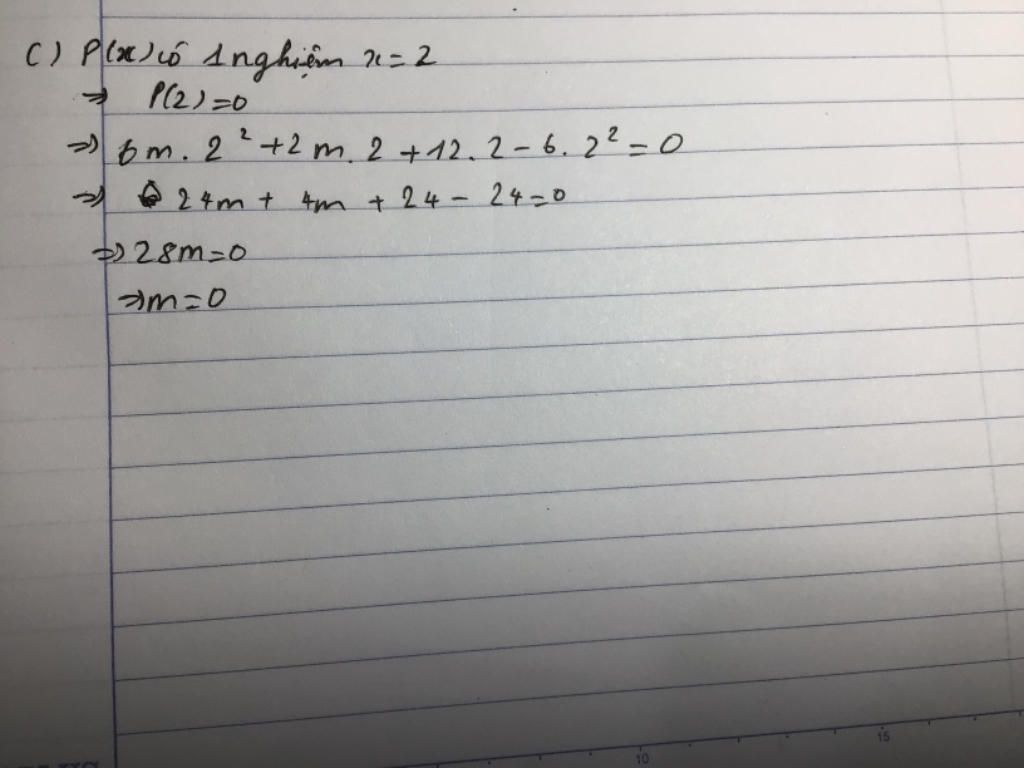 C) P(x) có 1 nghiệm x = 2
=> P(2) = 0
=> 6m . 2² + 2m . 2 + 12 . 2 - 6 . 2² = 0
=> 24m + 4m + 24 - 24 = 0
=> 28m = 0
=> m = 0
10
15